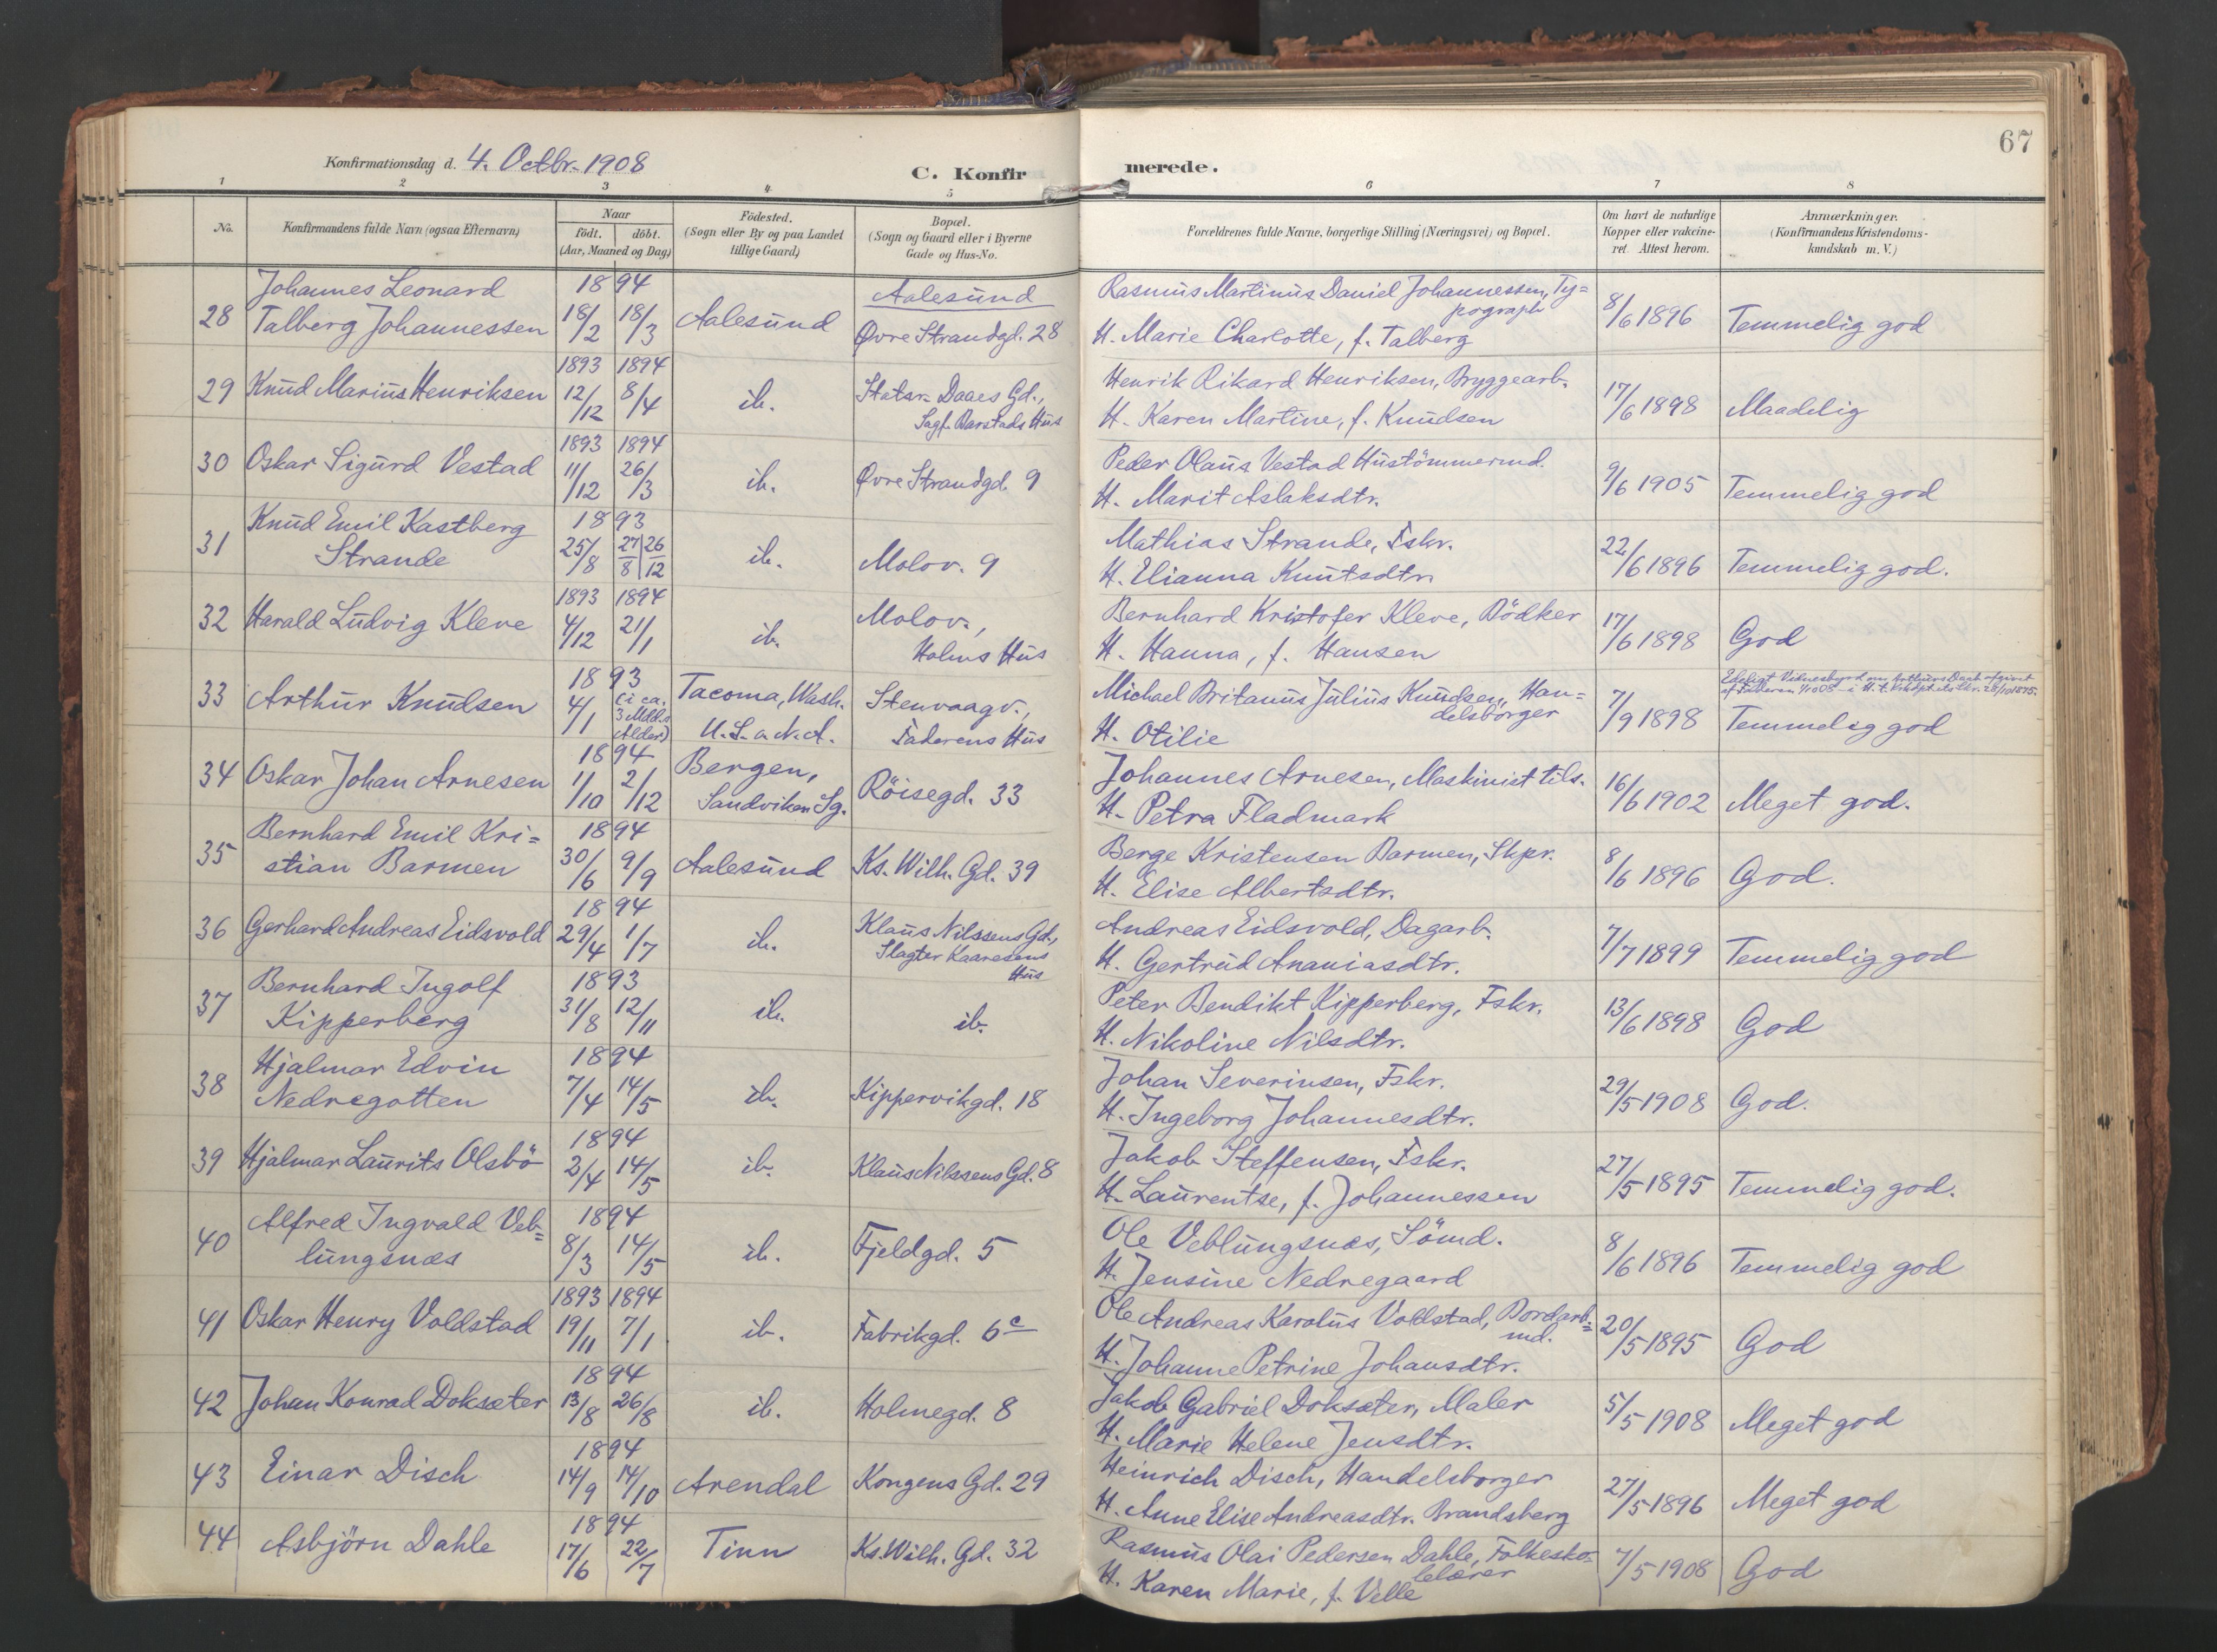 67
Konfirmationsdag d. 4. Octbr. 1908
C. Konfir merede.
1 2 3 4 5 6 7 8
No. Konfirmandens fulde Navn (ogsaa Efternavn) Naar födt. döbt. (Aar, Maaned og Dag) Födested. (Sogn eller By og paa Landet tillige Gaard) Bopæl. (Sogn og Gaard eller i Byerne Gade og Hus-No. Forældrenes fulde Navne, borgerlige Stilling (Næringsvei) og Bopæl. Om havt de naturlige Kopper eller vakcineret. Attest herom. Anmærkninger. (Konfirmandens Kristendomskundskab m. V.)
28 Johannes Leonard Talberg Johannessen 1894 18/2 18/3 Aalesund Aalesund Øvre Strandgd. 28 Rasmus Martinus Daniel Johannessen, Ty=pograph H. Marie Charlotte, f. Talberg 8/6 1896 Temmelig god
29 Knud Marius Henriksen 1893 12/12 1894 8/4 ib. Statsr. Daaes Gd., Sagf. Barstads Hus Henrik Rikard Henriksen, Bryggearb. H. Karen Martine, f. Knudsen 17/6 1898 Maadelig
30 Oskar Sigurd Vestad 1893 11/12 1894 26/3 ib. Øvre Strandgd. 9 Peder Olaus Vestad Hustömmermd. H. Marit Aslaksdtr. 9/6 1905 Temmelig god
31 Knud Emil Kastberg Strande 1893 25/8 27/8 26/12 ib. Molov. 9 Mathias Strande, Fskr. H. Elianna Knutsdtr. 22/6 1896 Temmelig god.
32 Harald Ludvig Kleve 1893 4/12 1894 21/1 ib. Molov., Holms Hus Bernhard Kristofer Kleve, Bödker H. Hanna, f. Hansen 17/6 1898 God
33 Arthur Knudsen 1893 4/1 (i ca. 3 Mdds. Alder) Tacoma, Wash. U. S. a N. A. Stenvaagv., Faderens Hus Michael Britanus Julius Knudsen, Han=delsborger H. Otilie 7/9 1898 Temmelig god
34 Oskar Johan Arnesen 1894 1/10 2/12 Bergen, Sandviken Sg. Röisegd. 33 Johannes Arnesen, Maskinist tils. H. Petra Fladmark 16/6 1902 Meget god.
35 Bernhard Emil Kri=stian Barmen 1894 30/6 9/9 Aalesund Ks. Wilh. Gd. 39 Berge Kristensen Barmen, Skpr. H. Elise Albertsdtr. 8/6 1896 God.
36 Gerhard Andreas Eidsvold 1894 29/4 1/7 ib. Klaus Nilssens Gd., Slagter Kaaresens Hus Andreas Eidsvold, Dagarb. H. Gertrud Ananiasdtr. 7/7 1899 Temmelig god
37 Bernhard Ingolf Kipperberg 1893 31/8 12/11 ib. ib. Peter Bendikt Kipperberg, Fskr. H. Nikoline Nilsdtr. 13/6 1898 God
38 Hjalmar Edvin Nedregotten 1894 7/4 14/5 ib. Kippervikgd. 18 Johan Severinsen, Fskr. H. Ingeborg Johannesdtr. 29/5 1908 God.
39 Hjalmar Laurits Olsbö 1894 2/4 14/5 ib. Klaus Nilssens Gd. 8 Jakob Steffensen, Fskr. H. Laurentse, f. Johannessen 27/5 1895 Temmelig god.
40 Alfred Ingvald Veb=lungsnæs 1894 8/3 14/5 ib. Fjeldgd. 5 Ole Veblungsnæs, Sömd. H. Jensine Nedregaard 8/6 1896 Temmelig god
41 Oskar Henry Voldstad 1893 19/11 1894 7/1 ib. Fabrikgd. 6c Ole Andreas Karolus Voldstad, Bordarb.=md. H. Johanne Petrine Johansdtr. 20/5 1895 God
42 Johan Konrad Doksæter 1894 13/8 26/8 ib. Holmegd. 8 Jakob Gabriel Doksæter, Maler H. Marie Helene Jensdtr. 5/5 1908 Meget god
43 Einar Disch 1894 14/9 14/10 Arendal Kongens Gd. 29 Heinrich Disch, Handelsborger H. Anne Elise Andreasdtr. Brandsberg 27/5 1896 Meget god
44 Asbjörn Dahle 1894 17/6 22/7 Tinn Ks. Wilh. Gd. 32 Rasmus Olai Pedersen Dahle, Folkesko=lelærer H. Karen Marie, f. Velle 7/5 1908 God